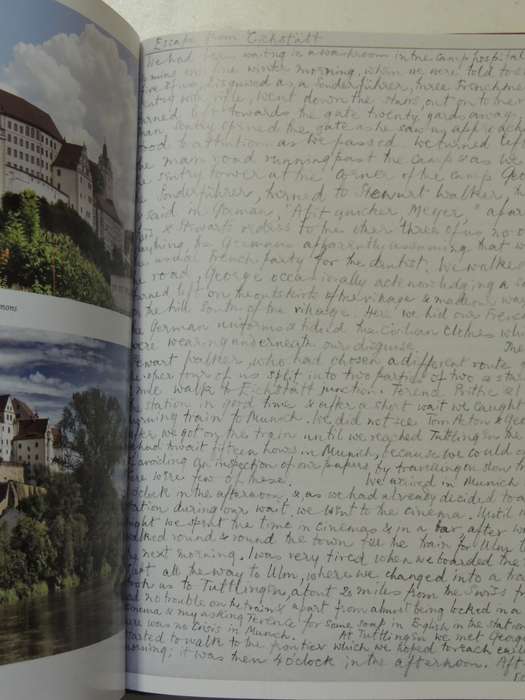 Escape from Eichstätt
we had been waiting in a washroom in the camp hospital
one fine winter morning, when we were told to
five of us, disguised as a sonderführer, three Frenchmen
sentry with rifle, went down the stairs, out on to the
turned left towards the gate twenty yards away.
man, sentry opened the gate as he saw us approach
stood to attention as we passed. We turned left
the main road running past the camp & as we
the sentry tower at the corner of the camp Geo
Sonderführer, turned to Stewart Walker,
said in German, "A bit quicker, Meyer," apar
& Stewarts orders to the other three of us no-o
anything, the Germans apparently assuming that w
usual French party for the dentist. We walked
the road, George occasionally acknowledging a sa
turned left on the outskirts of the village & made our wa
the hill south of the village. Here we hid our Frenc
German uniforms & tidied the civilian clothes whic
were wearing underneath our disguise. The
Stewart Walker, who had chosen a different route
the other four of us split into two parties of two & sta
mile walk to Eichstätt junction. Terence Prittie & I
the station in good time & after a short wait we caught
morning train to Munich. We did not see Tom Acton & Geo
after we got on the train until we reached Tuttlingen
had to wait fifteen hours in Munich, because we could o
avoiding an inspection of our papers by travelling on slow tr
there were few of these. We arrived in Munich
o'clock in the afternoon, & as we had already decided to a
station during our wait, we went to the cinema. Until
night we spent the time in cinemas & in a bar, after w
walked round & round the town till the train for Ulm
the next morning. I was very tired when we boarded the
slept all the way to Ulm, where we changed into a tra
took us to Tuttlingen, about 20 miles from the Swiss fr
had no trouble on the trains & apart from almost being locked in a
cinema & my asking Terence for some soap in English in the station
there was no crisis in Munich. At Tuttlingen we met George
started to walk to the frontier which we hoped to reach early
morning; it was then 4 o'clock in the afternoon. Aft